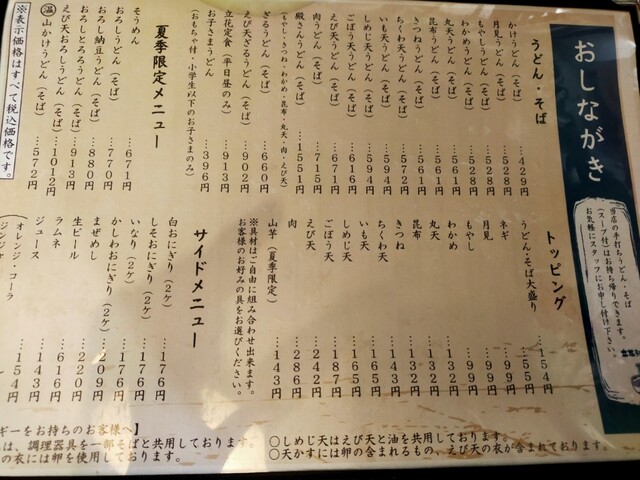 おしながき
当店の手打ちうどん・そば
（スープ付）はお持ち帰りできます。
お気軽にスタッフにお申し付け下さい。
うどん・そば
かけうどん（そば）…429円
月見うどん（そば）…528円
もやしうどん（そば）…528円
わかめうどん（そば）…528円
丸天うどん（そば）…561円
昆布うどん（そば）…561円
きつねうどん（そば）…572円
ちくわ天うどん（そば）…561円
いも天うどん（そば）…594円
しめじ天うどん（そば）…594円
ごぼう天うどん（そば）…616円
えび天うどん（そば）…671円
肉うどん（そば）…715円
殿さんうどん（そば）…1551円
（もやし・きつね・わかめ・昆布・丸天・肉・えび天）
ざるうどん（そば）…660円
えび天ざるうどん（そば）…902円
立花定食（平日昼のみ）…913円
お子さまうどん…396円
（おもちゃ付・小学生以下のお子さまのみ）
夏季限定メニュー
そうめん…671円
おろしうどん（そば）…770円
おろし納豆うどん（そば）…880円
…913円
えび天おろしうどん（そば）…1012円
温山かけうどん（そば）…572円
※表示価格はすべて税込価格です。
トッピング
うどん・そば大盛り…154円
ネギ…55円
月見…99円
もやし…99円
わかめ…99円
丸天…132円
昆布…132円
きつね…143円
ちくわ天…132円
いも天…165円
しめじ天…165円
ごぼう天…187円
えび天…242円
肉…286円
山芋（夏季限定）…143円
※具材はご自由に組み合わせ出来ます。
お客様のお好みの具をお選びください。
サイドメニュー
白おにぎり（2ケ）…176円
しそおにぎり（2ケ）…176円
いなり（2ケ）…176円
かしわおにぎり（2ケ）…209円
まぜめし…220円
生ビール…616円
ラムネ…143円
ジュース…154円
（オレンジ・コーラ
ギーをお持ちのお客様へ】
は、調理器具を一部そばと共用しております。
の衣には卵を使用しております。
○しめじ天はえび天と油を共用しております。
○天かすには卵の含まれるもの、えび天の衣が含まれております。